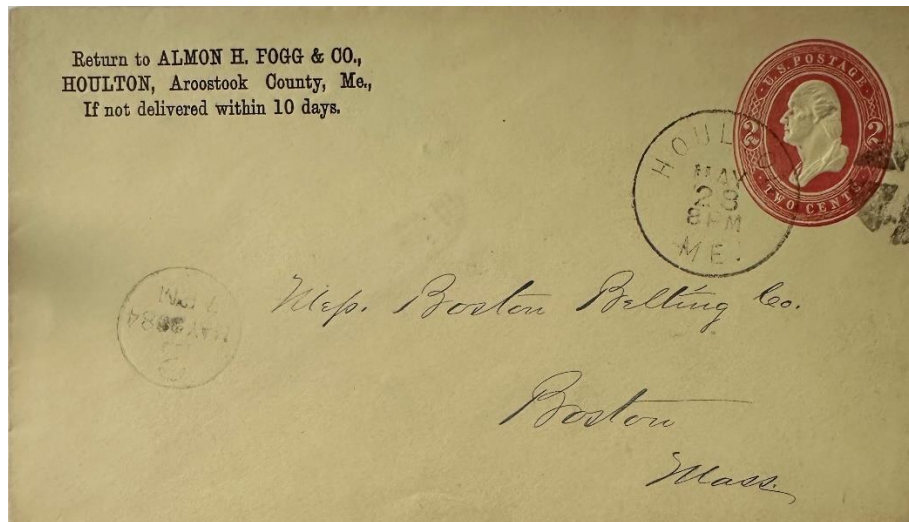 Return to ALMON H. FOGG & CO.,
HOULTON, Aroostook County, Me.,
If not delivered within 10 days.
U.S. POSTAGE
2 2
TWO CENTS
HOULTON
MAY
28
8 PM
ME.
Mess. Boston Belting Co.
Boston
Mass.
MAY 84